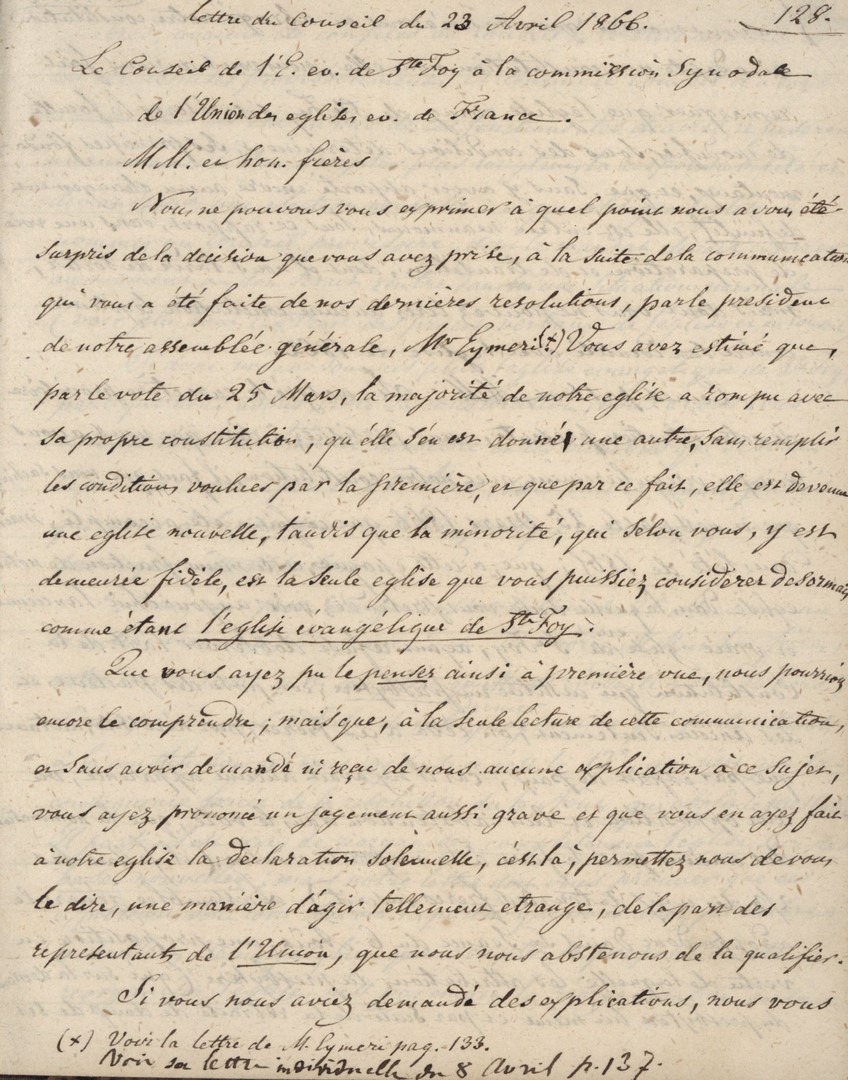 lettre du Conseil du 23 Avril 1866. 128.
Le Conseil de l'E. ev. de Ste Foy à la commission Synodale
de l'Union des eglises ev. de France.
MM. et hon. frères
Nous ne pouvons vous exprimer à quel point nous avons été
surpris de la décision que vous avez prise, à la suite de la communication
qui vous a été faite de nos dernières resolutions, par le president
de notre assemblée générale, Mr Eymeri (x) Vous avez estimé que,
par le vote du 25 Mars, la majorité de notre eglise a rompu avec
sa propre constitution, qu'elle s'en est donné une autre, sans remplir
les conditions voulues par la première, et que par ce fait, elle est devenue
une eglise nouvelle, tandis que la minorité, qui selon vous, y est
demeurée fidèle, est la seule eglise que vous puissiez considerer desormais
comme étant l'eglise évangélique de Ste Foy.
Que vous ayez pu le penser ainsi à première vue, nous pourrions
encore le comprendre; mais que, à la seule lecture de cette communication,
et sans avoir demandé ni reçu de nous aucune explication à ce sujet,
vous ayez prononcé un jugement aussi grave et que vous en ayez fait
à notre eglise la déclaration solennelle, c'est là, permettez nous de vous
le dire, une manière d'agir tellement etrange, de la part des
representants de l'Union, que nous nous abstenons de la qualifier.
Si vous nous aviez demandé des explications, nous vous
(x) Voir la lettre de M. Eymeri pag. 133.
Voir sa lettre individuelle du 8 Avril p. 137.